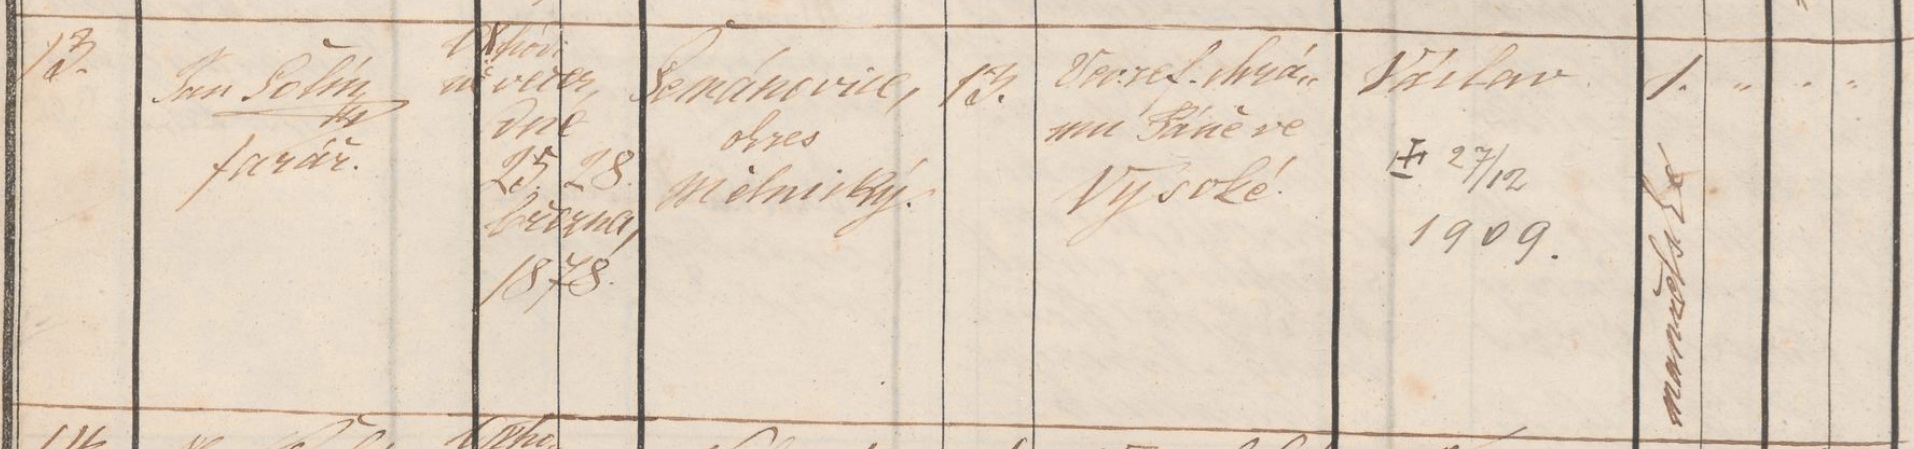 13.
Jan Šolín
farář.
v 8 hodi
večer,
dne
25. 28.
března,
1878.
Šemánovice,
okres
Mělnický.
13.
V ev. ref. chrá„
mu Páně ve
Vysoké.
Václav
27/12
1909.
1. „ „ „
manželské
14.